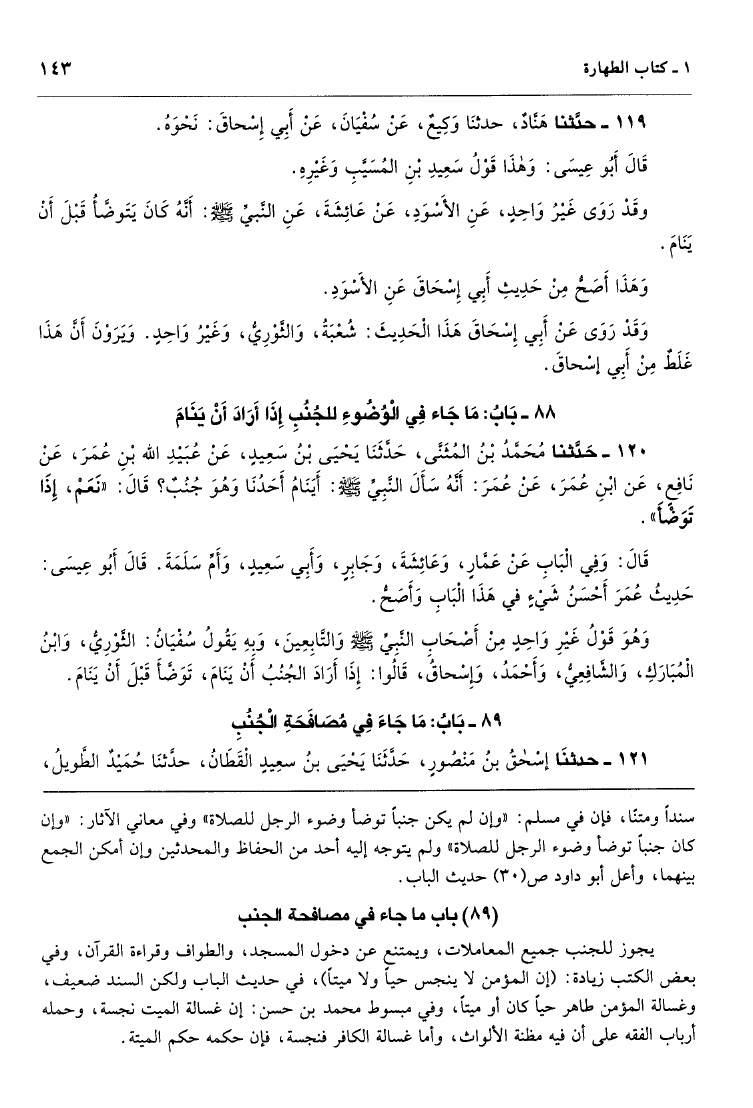 ١ ـ كتاب الطهارة ١٤٣
١١٩ ـ حدَّثنا هَنَّادٌ، حدثنَا وَكِيعٌ، عَنْ سُفْيَانَ، عَنْ أَبِي إِسْحاقَ: نَحْوَهُ.
قَالَ أَبُو عِيسَى: وَهٰذَا قَوْلُ سَعِيدِ بْنِ المُسَيَّبِ وَغَيْرِهِ.
وقَدْ رَوَى غَيْرُ وَاحِدٍ، عَنِ الأَسْوَدِ، عَنْ عَائِشَةَ، عَنِ النَّبِيِّ ﷺ: أَنَّهُ كَانَ يَتَوضَّأُ قَبْلَ أَنْ
يَنَامَ.
وَهَذَا أَصَحُّ مِنْ حَدِيثِ أَبِي إِسْحَاقَ عَنِ الأَسْوَدِ.
وَقَدْ رَوَى عَنْ أَبِي إِسْحَاقَ هَذَا الْحَدِيثَ: شُعْبَةُ، وَالثَّوْرِيُّ، وَغَيْرُ وَاحِدٍ. وَيَرَوْنَ أَنَّ هَذَا
غَلَطٌ مِنْ أَبِي إِسْحاقَ.
٨٨ ـ بَابُ: مَا جَاء فِي الْوُضُوءِ للجُنُبِ إِذَا أَرَادَ أَنْ يَنَامَ
١٢٠ ـ حَدَّثنا مُحَمَّدُ بْنُ المُثَنَّى، حَدَّثَنَا يَحْيَى بْنُ سَعِيدٍ، عَنْ عُبَيْدِ الله بْنِ عُمَرَ، عَنْ
نَافِعٍ، عَن ابْنِ عُمَرَ، عَنْ عُمَرَ: أَنَّهُ سَأَلَ النَّبِيَّ ﷺ: أَيَنَامُ أَحَدُنَا وَهُوَ جُنُبٌ؟ قَالَ: «نَعَمْ، إِذَا
تَوَضَّأَ».
قَالَ: وَفِي الْبَابِ عَنْ عَمَّارٍ، وَعَائِشَةَ، وَجَابِرٍ، وَأَبِي سَعِيدٍ، وَأُمِّ سَلَمَةَ. قَالَ أَبُو عِيسَى:
حَدِيثُ عُمَرَ أَحْسَنُ شَيْءٍ في هَذَا الْبَابِ وَأَصَحُّ.
وَهُوَ قَوْلُ غَيْرِ وَاحِدٍ مِنْ أَصْحَابِ النَّبِيِّ ﷺ وَالتَّابِعِينَ، وَبِهِ يَقُولُ سُفْيَانُ: الثَّوْرِيُّ، وَابْنُ
الْمُبَارَكِ، وَالشَّافِعِيُّ، وَأَحْمَدُ، وَإِسْحاقُ، قَالُوا: إِذَا أَرَادَ الجُنُبُ أَنْ يَنَامَ، تَوَضَّأَ قَبْلَ أَنْ يَنَامَ.
٨٩ ـ بَابُ: مَا جَاءَ فِي مُصَافَحَةِ الْجُنُبِ
١٢١ ـ حدثنَا إِسْحٰقُ بنُ مَنْصُورٍ، حَدَّثَنَا يَحْيَى بنُ سعِيدٍ الْقَطَانُ، حدثَنا حُمَيْدٌ الطَّوِيلُ،
سنداً ومتنًا، فإن في مسلم: «وإن لم يكن جنباً توضأ وضوء الرجل للصلاة» وفي معاني الآثار: «وإن
كان جنباً توضأ وضوء الرجل للصلاة» ولم يتوجه إليه أحد من الحفاظ والمحدثين وإن أمكن الجمع
بينهما، وأعل أبو داود ص(٣٠) حديث الباب.
(٨٩) باب ما جاء في مصافحة الجنب
يجوز للجنب جميع المعاملات، ويمتنع عن دخول المسجد، والطواف وقراءة القرآن، وفي
بعض الكتب زيادة: (إن المؤمن لا ينجس حياً ولا ميتاً)، في حديث الباب ولكن السند ضعيف،
وغسالة المؤمن طاهر حياً كان أو ميتاً، وفي مبسوط محمد بن حسن: إن غسالة الميت نجسة، وحمله
أرباب الفقه على أن فيه مظنة الألواث، وأما غسالة الكافر فنجسة، فإن حكمه حكم الميتة.